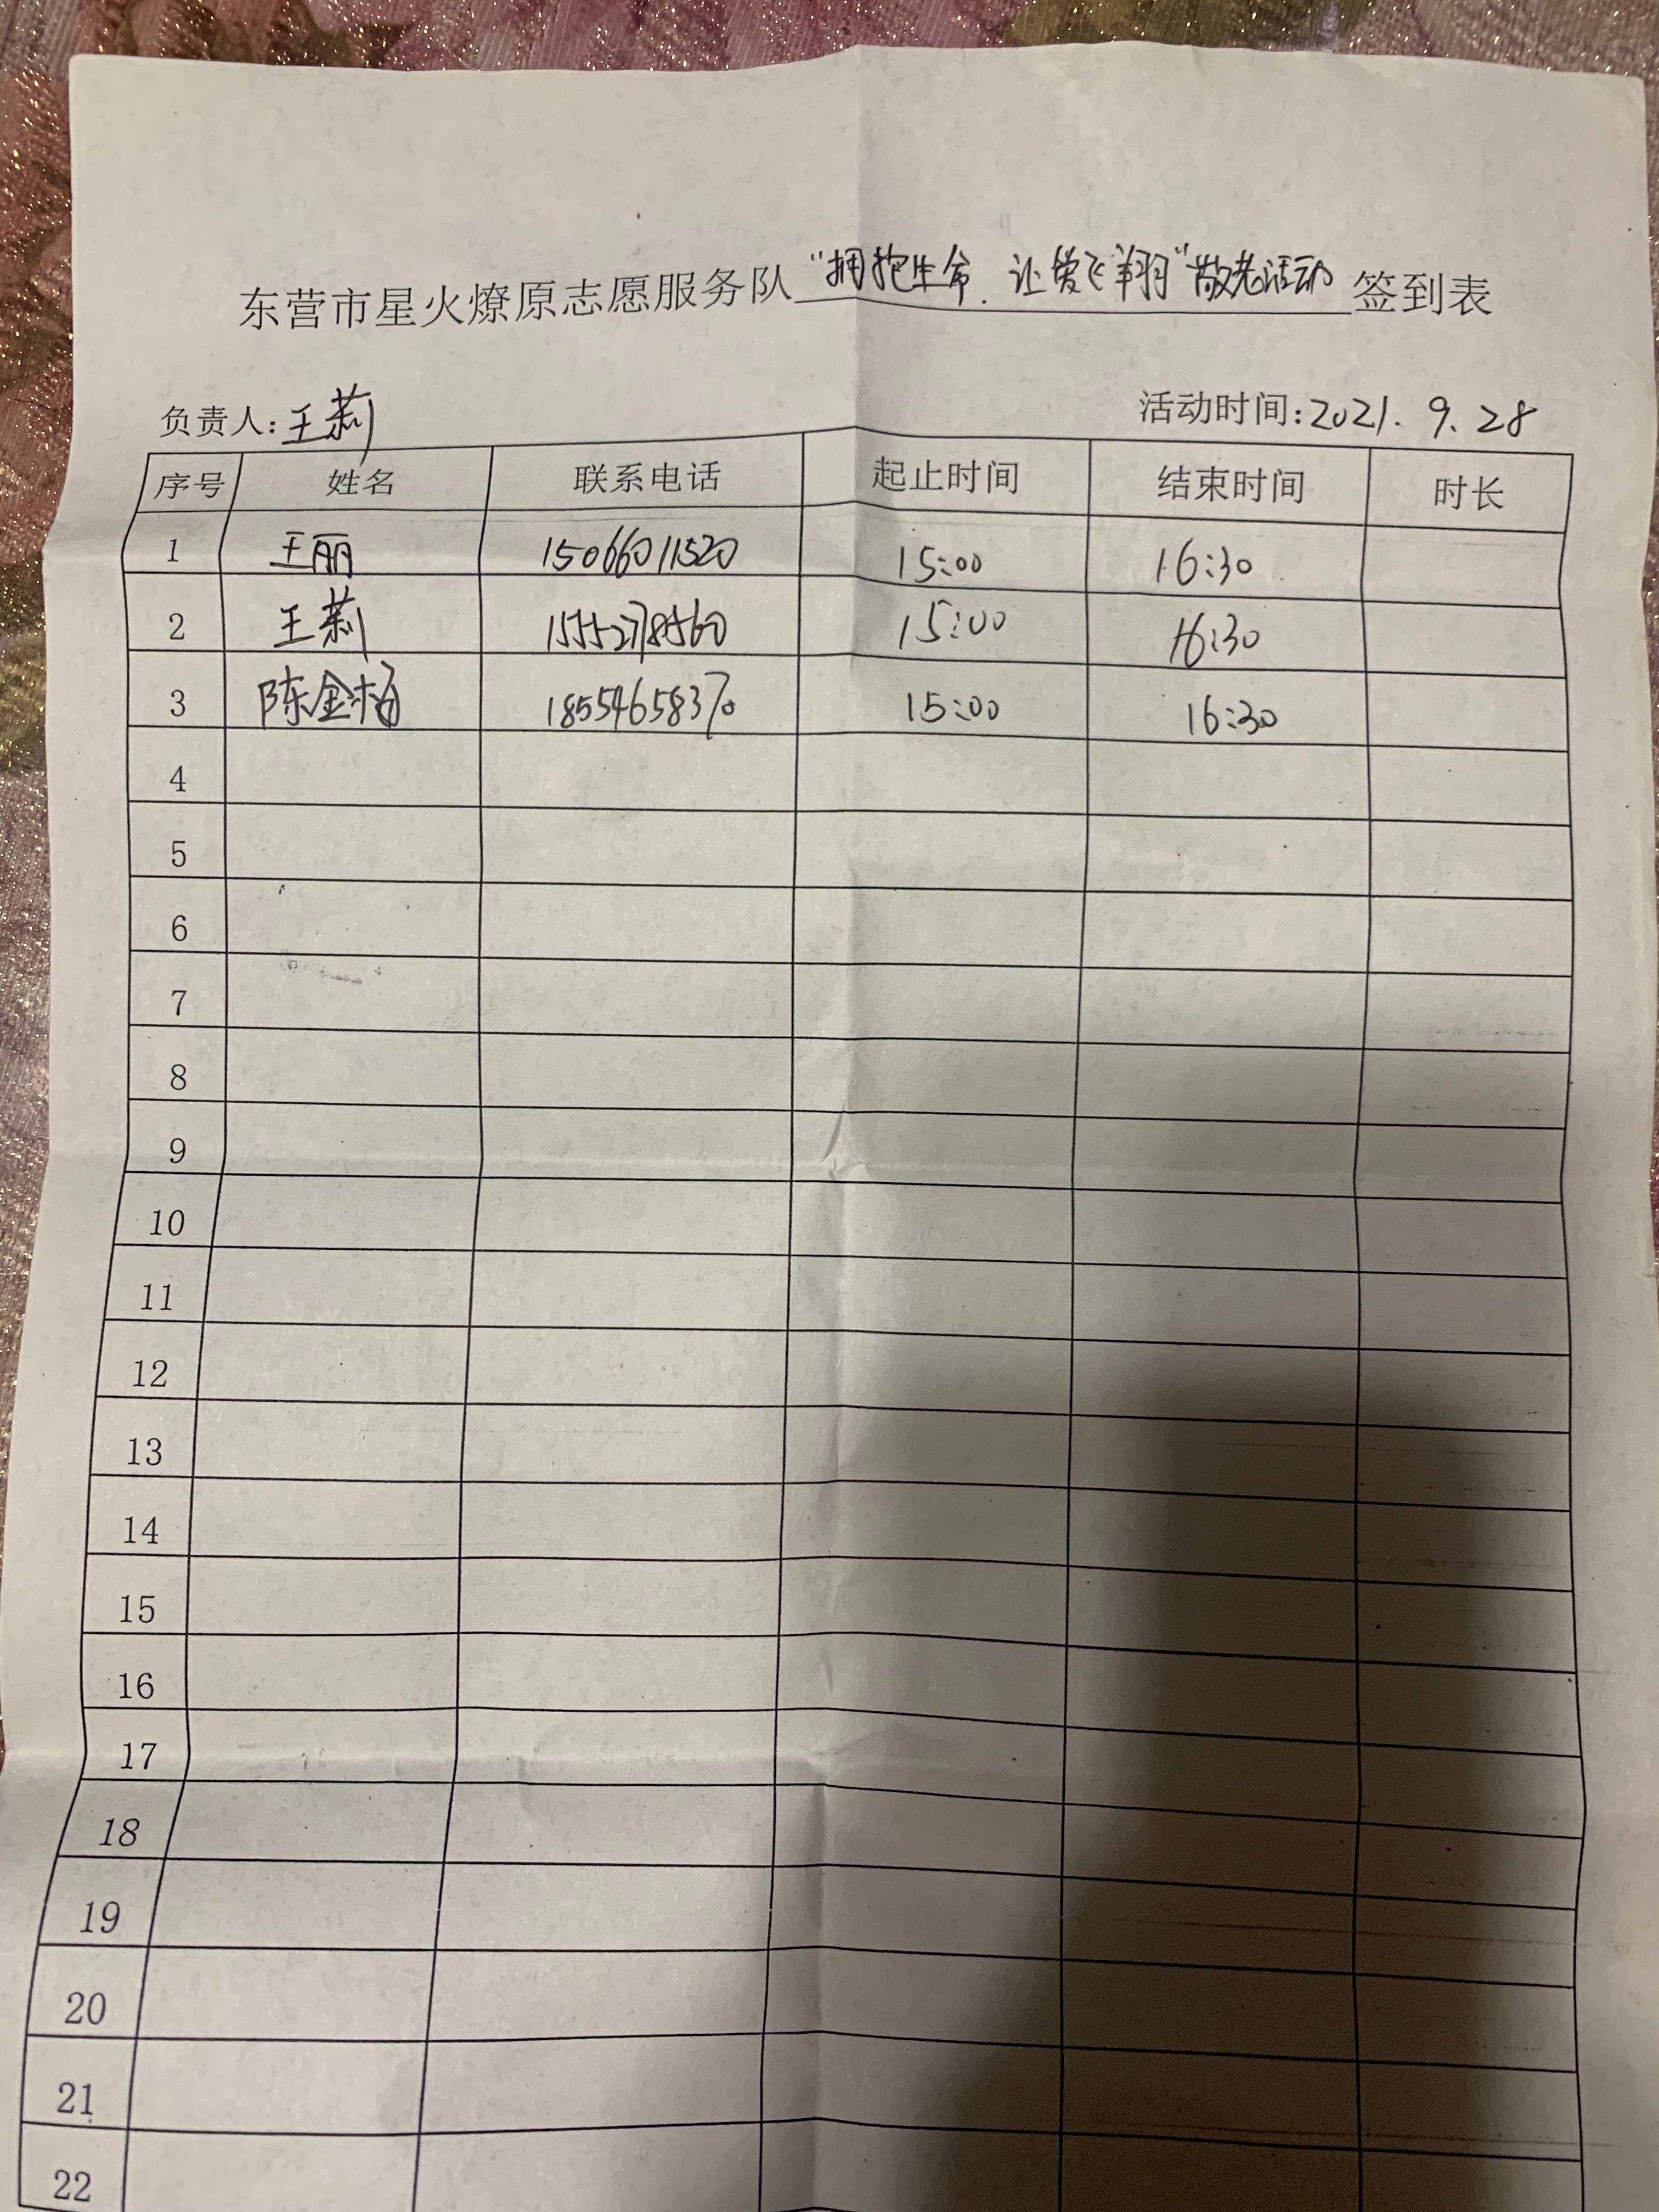 东营市星火燎原志愿服务队“拥抱生命.让爱飞翔”敬老活动签到表
负责人:王莉 活动时间:2021.9.28
序号 姓名 联系电话 起止时间 结束时间 时长
1 王丽 15066011520 15:00 16:30
2 王莉 15552718560 15:00 16:30
3 陈金梅 18554658370 15:00 16:30
4
5
6
7
8
9
10
11
12
13
14
15
16
17
18
19
20
21
22